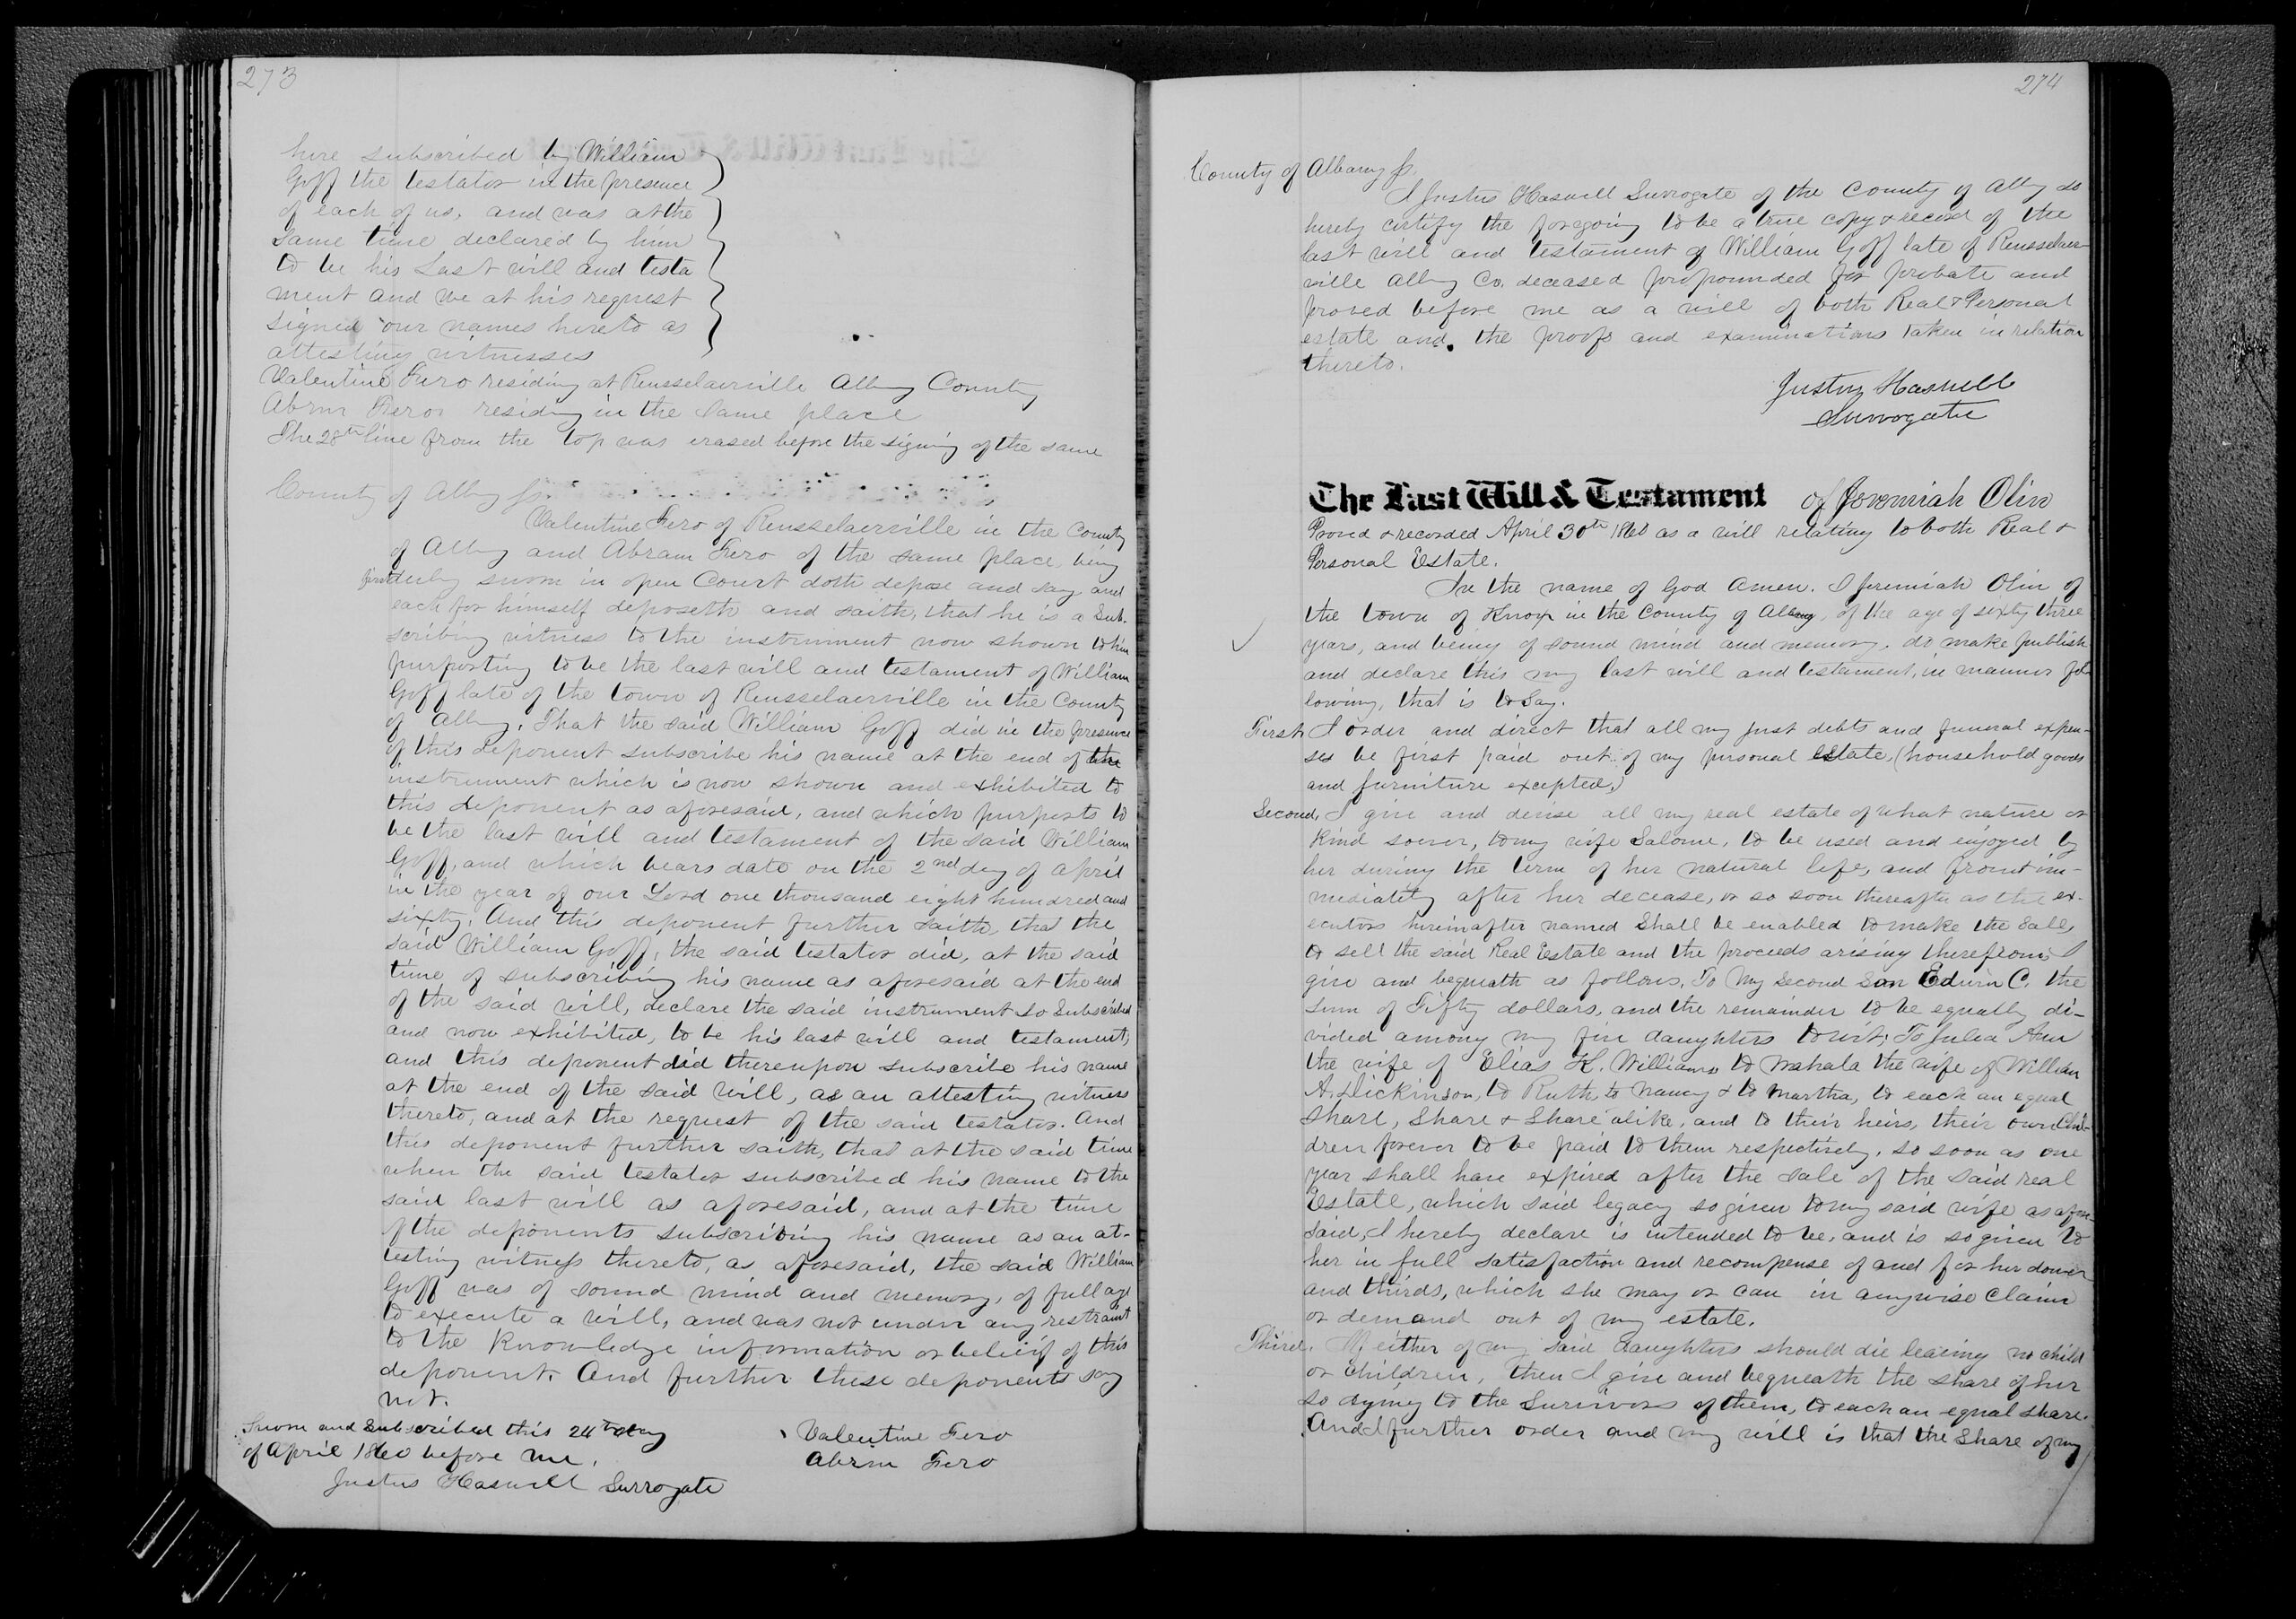 273
here subscribed by William
Goff the testator in the presence
of each of us, and was at the
same time declared by him
to be his Last will and testa
ment and we at his request
signed our names hereto as
attesting witnesses
Valentine Fero residing at Rensselaerville Albany County
Abrm Fero residing in the same place
The 28th line from the top was erased before the signing of the same
County of Albany ss.
Valentine Fero of Rensselaerville in the County
of Albany and Abram Fero of the same place being
first duly sworn in open Court doth depose and say and
each for himself deposeth and saith, that he is a sub-
scribing witness to the instrument now shown to him
purporting to be the last will and testament of William
Goff late of the town of Rensselaerville in the County
of Albany. That the said William Goff did in the presence
of this deponent subscribe his name at the end of the
instrument which is now shown and exhibited to
this deponent as aforesaid, and which purports to
be the last will and testament of the said William
Goff, and which bears date on the 2nd day of April
in the year of our Lord one thousand eight hundred and
sixty. And this deponent further saith, that the
said William Goff, the said testator did, at the said
time of subscribing his name as aforesaid at the end
of the said will, declare the said instrument so Subscribed
and now exhibited, to be his last will and testament,
and this deponent did thereupon subscribe his name
at the end of the said will, as an attesting witness
thereto, and at the request of the said testator. And
this deponent further saith, that at the said time
when the said testator subscribed his name to the
said last will as aforesaid, and at the time
of the deponents subscribing his name as an at-
testing witness thereto, as aforesaid, the said William
Goff was of sound mind and memory, of full age
to execute a will, and was not under any restraint
to the knowledge information or belief of this
deponent. And further these deponents say
not.
Sworn and Subscribed this 24th day
of April 1860 before me.
Justus Haswell Surrogate
Valentine Fero
Abrm Fero
274
County of Albany ss.
I Justus Haswell Surrogate of the County of Albany do
hereby certify the foregoing to be a true copy & record of the
last will and testament of William Goff late of Rensselaer-
ville Albany Co. deceased propounded for probate and
proved before me as a will of both Real & Personal
estate and the proofs and examinations taken in relation
thereto.
Justus Haswell
Surrogate
The Last Will & Testament of Jeremiah Olin
Proved & recorded April 30th 1860 as a will relating to both Real &
Personal Estate.
In the name of God Amen. I Jeremiah Olin of
the town of Knox in the County of Albany, of the age of sixty three
years, and being of sound mind and memory, do make publish
and declare this my last will and testament, in manner fol-
lowing, that is to Say.
First, I order and direct that all my just debts and funeral expen-
ses be first paid out of my personal estate, (household goods
and furniture excepted,)
Second, I give and devise all my real estate of what nature or
kind soever, to my wife Salome, to be used and enjoyed by
her during the term of her natural life, and from im-
mediately after her decease, or so soon thereafter as the ex-
ecutors hereinafter named Shall be enabled to make the Sale,
to sell the said Real Estate and the proceeds arising therefrom, I
give and bequeath as follows, To My Second Son Edwin C. the
sum of Fifty dollars, and the remainder to be equally di-
vided among my five daughters to wit; To Julia Ann
the wife of Elias K. Williams to Mahala the wife of William
A. Dickinson, to Ruth, to Nancy & to Martha, to each an equal
share, Share & Share alike, and to their heirs, their own chil-
dren forever to be paid to them respectively, so soon as one
year shall have expired after the sale of the said real
Estate, which said legacy so given to my said wife as afore-
said, I hereby declare is intended to be, and is so given to
her in full satisfaction and recompense of and for her dower
and thirds, which she may or can in anywise claim
or demand out of my estate.
Third. If either of my said daughters should die leaving no child
or children, then I give and bequeath the share of her
so dying to the Survivors of them, to each an equal share.
And I further order and my will is that the Share of my